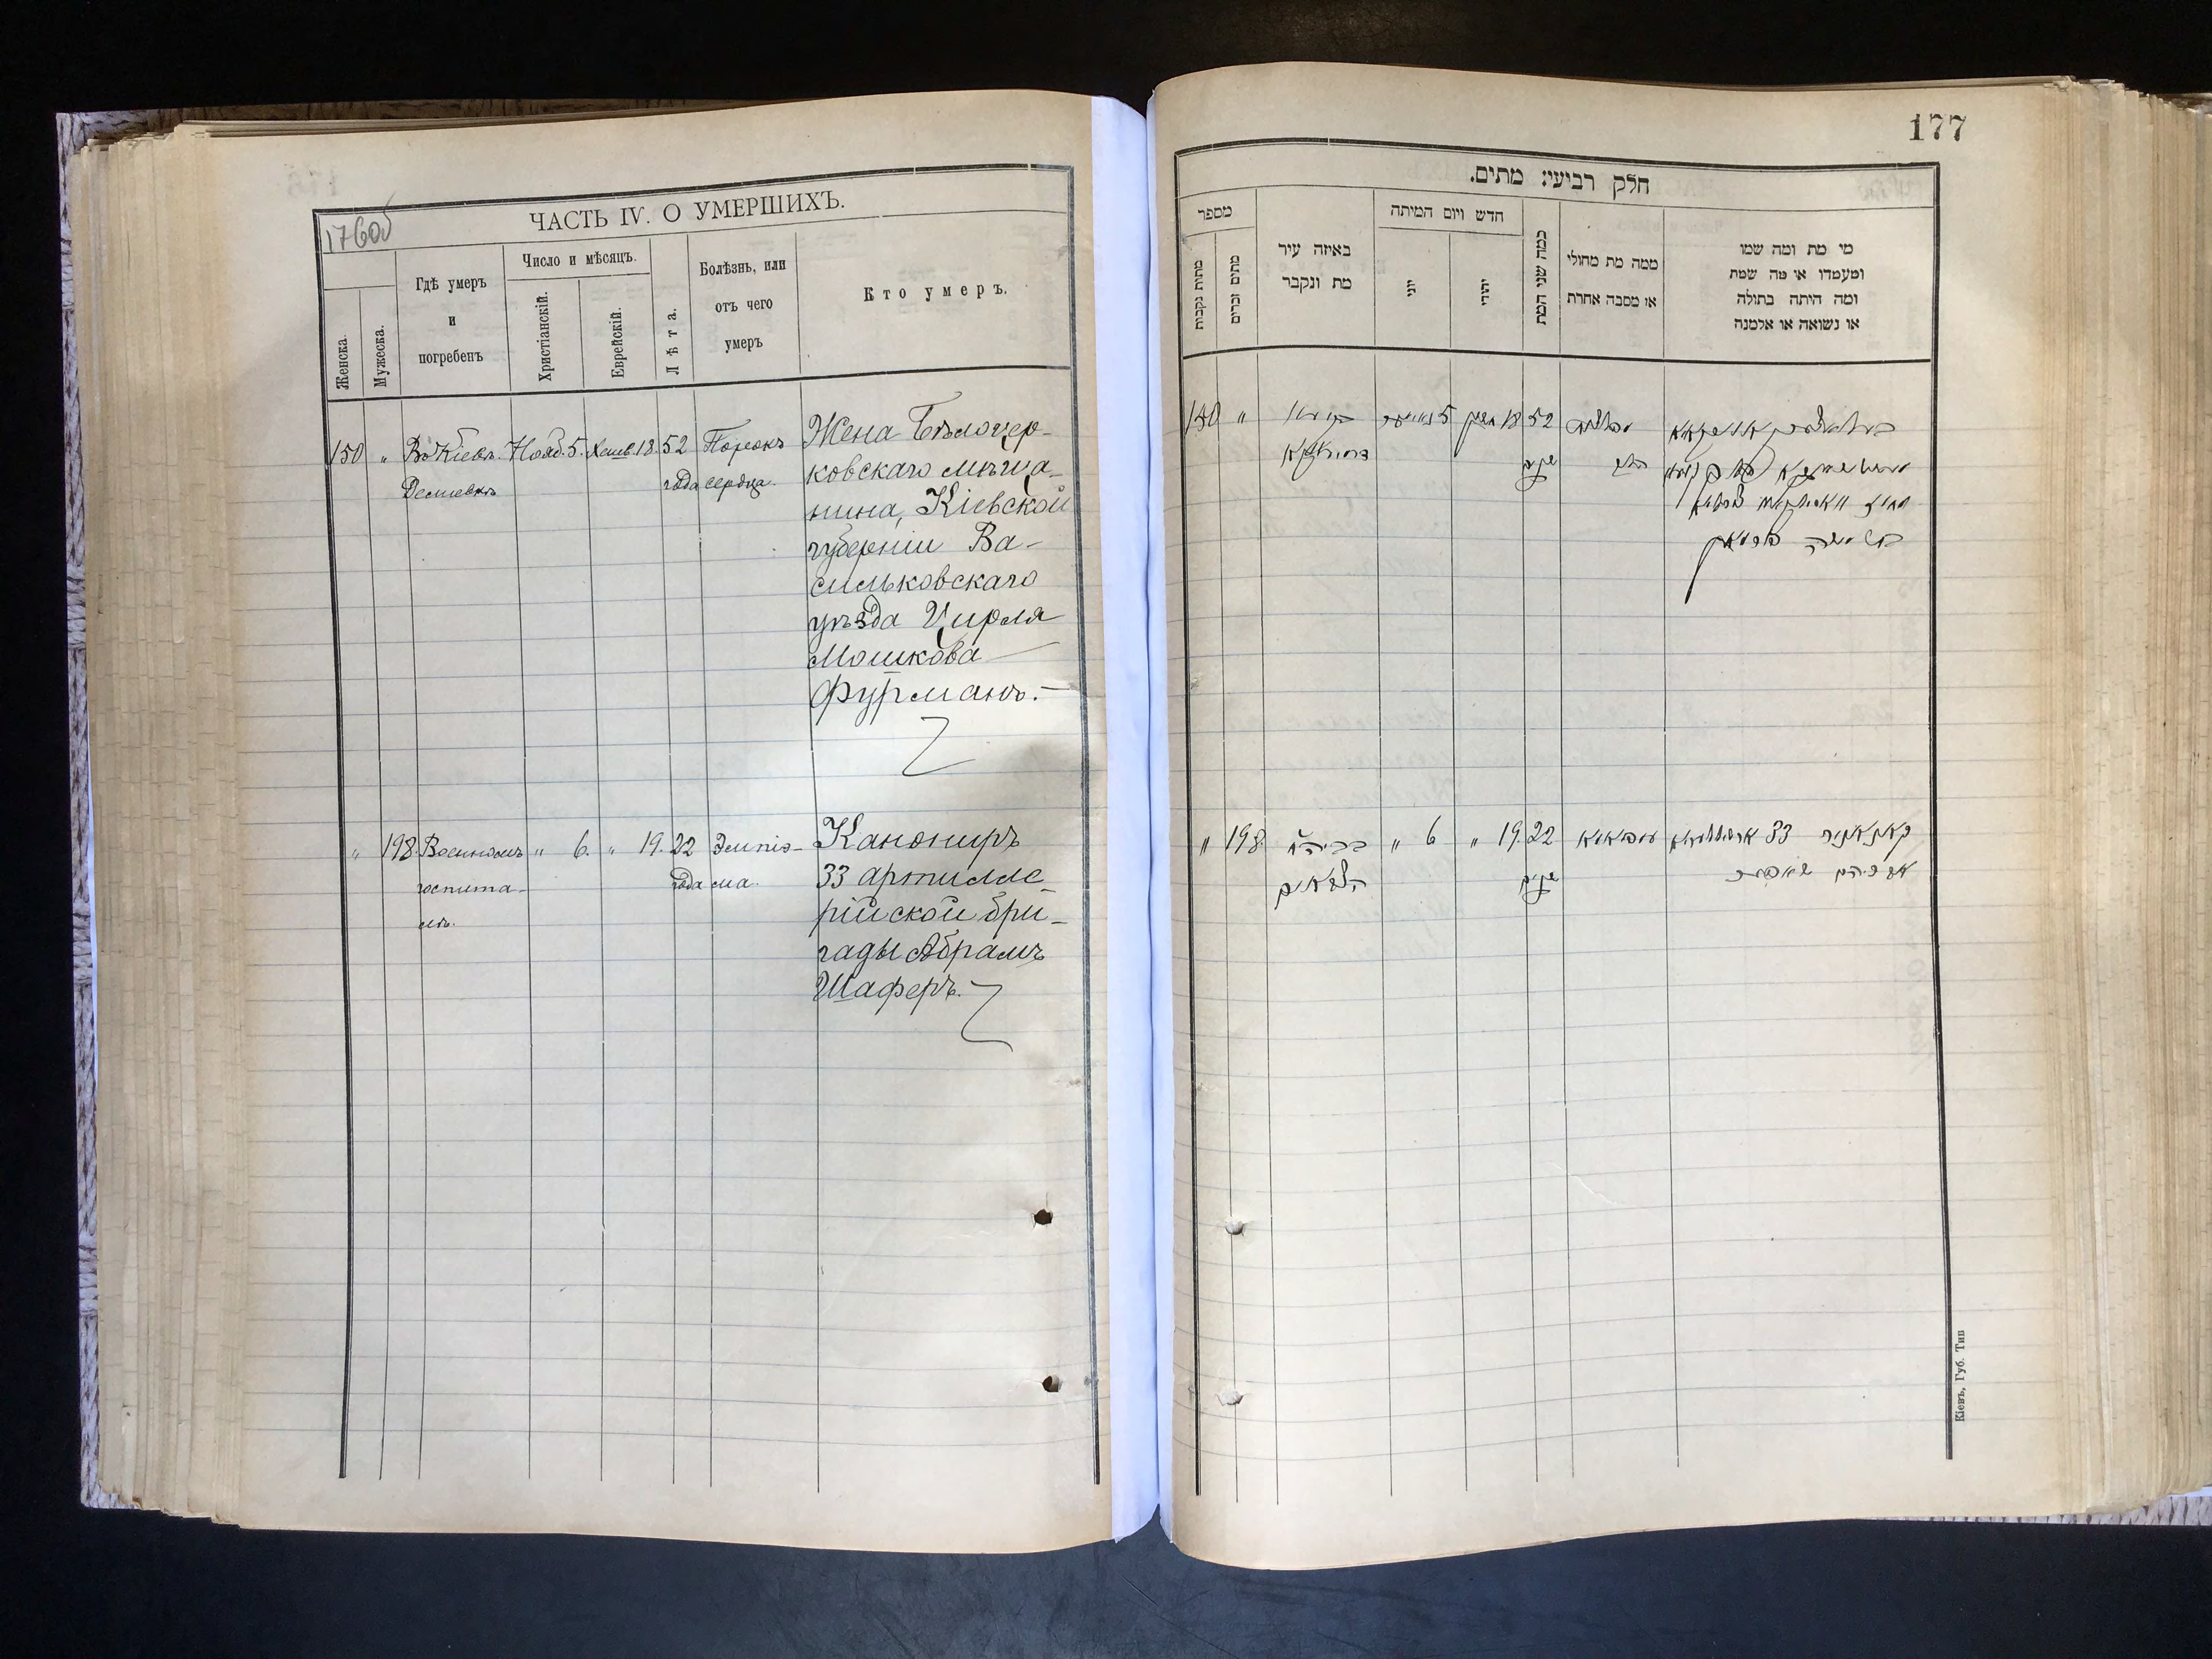 176об
ЧАСТЬ IV. О УМЕРШИХЪ.
Женска.
Мужеска.
Гдѣ умеръ
и
погребенъ
Число и мѣсяцъ.
Христіанскій.
Еврейскій.
Лѣта.
Болѣзнь, или
отъ чего
умеръ
Кто умеръ.
150 " Въ Кіевѣ. Нояб. 5. Хешв. 18. 52 Порокъ
Демiевкѣ года сердца.
Жена Бѣлоцер-
ковскаго мѣща-
нина, Кіевской
губерніи Ва-
сильковскаго
уѣзда Цирля
Мошкова
Фурманъ.
" 198. Военномъ " 6. " 19. 22 Эмпіэ-
госпита- года ма.
лѣ.
Канониръ
33 артилле-
рійской бри-
гады Абрамъ
Шаферъ.
177
חלק רביעי: מתים.
מספר
מתות נקבות
מתים זכרים
באיזה עיר
מת ונקבר
חדש ויום המיתה
יוני
יהודי
כמה שני המת
ממה מת מחולי
או מסבה אחרת
מי מת ומה שמו
ומעמדו או מה שמת
ומה היתה בתולה
או נשואה או אלמנה
150 " 5 18 52
" 198. " 6 " 19. 22
שנים
קאנאניר 33
אברהם שאפער
Кіевъ, Губ. Тип